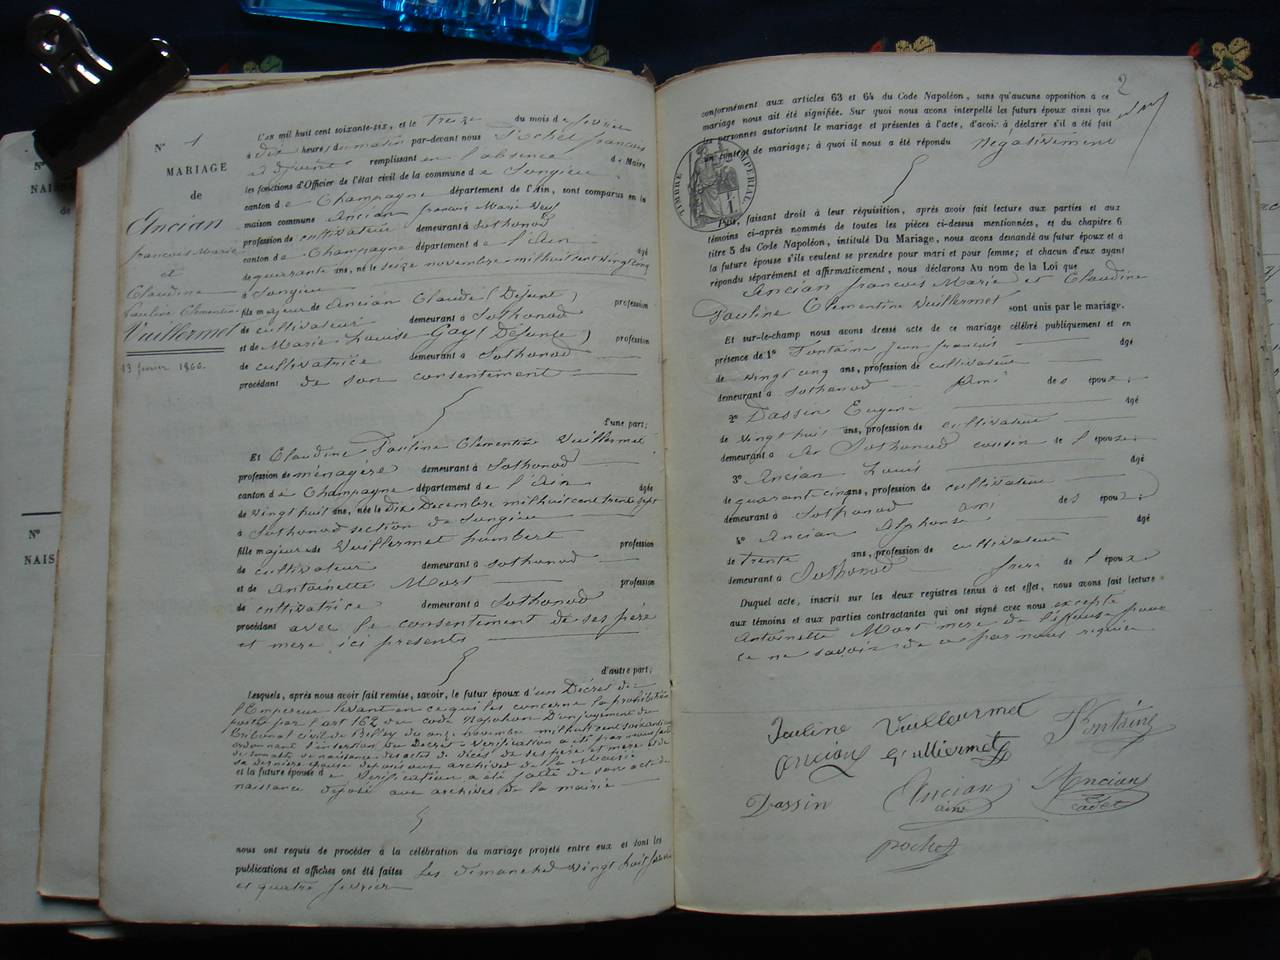 N° 1
MARIAGE
de
Ancian
françois-Marie
et
Claudine
Pauline Clémentine
Vuillermet
13 février 1866.
N°
NAIS
de
N°
NAIS
L'an mil huit cent soixante-six, et le Treize du mois de février
à Dix heures du matin par-devant nous Pochet françois
adjoint remplissant en l'absence de Maire
les fonctions d'Officier de l'état civil de la commune de Songieu
canton de Champagne département de l'Ain, sont comparus en la
maison commune Ancian françois Marie Veuf
profession de cultivateur demeurant à Sothonod
canton de Champagne département de l'Ain âgé
de quarante ans, né le seize novembre mil huit cent vingt cinq
à Songieu
fils majeur de Ancian Claude (Défunt) profession
de cultivateur demeurant à Sothonod
et de Marie Louise Gay (Défunte) profession
de cultivatrice demeurant à Sothonod
procédant de son consentement
d'une part;
Et Claudine Pauline Clémentine Vuillermet
profession de ménagère demeurant à Sothonod
canton de Champagne département de l'Ain âgée
de vingt huit ans, née le Dix Décembre mil huit cent trente sept
à Sothonod section de Songieu
fille majeure de Vuillermet humbert profession
de cultivateur demeurant à Sothonod
et de Antoinette Mort profession
de cultivatrice demeurant à Sothonod
procédant avec le consentement de ses père
et mere ici présents
d'autre part;
Lesquels, après nous avoir fait remise, savoir, le futur époux d'un Décret de
l'Empereur levant en ce qui les concerne la prohibition
portée par l'art 162 du code Napoléon D'un jugement du
tribunal civil de Belley du onze novembre mil huit cent soixante
ordonnant l'insertion du Décret - Vérification a été par nous faite
de naissance des actes de décès de ses père et mere et de
sa dernière épouse archives de la Mairie
et la future épouse de Vérification a été faite de son acte de
naissance déposé aux archives de la mairie
nous ont requis de procéder à la célébration du mariage projeté entre eux et dont les
publications et affiches ont été faites les dimanches vingt huit janvier
et quatre février
2
conformément aux articles 63 et 64 du Code Napoléon, sans qu'aucune opposition à ce
mariage nous ait été signifiée. Sur quoi nous avons interpellé les futurs époux ainsi que
les personnes autorisant le mariage et présentes à l'acte, d'avoir à déclarer s'il a été fait
un contrat de mariage; à quoi il nous a été répondu négativement
TIMBRE IMPÉRIAL
Puis, faisant droit à leur réquisition, après avoir fait lecture aux parties et aux
témoins ci-après nommés de toutes les pièces ci-dessus mentionnées, et du chapitre 6
titre 5 du Code Napoléon, intitulé Du Mariage, nous avons demandé au futur époux et à
la future épouse s'ils veulent se prendre pour mari et pour femme; et chacun d'eux ayant
répondu séparément et affirmativement, nous déclarons Au nom de la Loi que
Ancian françois Marie et Claudine
Pauline Clémentine Vuillermet sont unis par le mariage.
Et sur-le-champ nous avons dressé acte de ce mariage célébré publiquement et en
présence de 1° Fontaine Jean françois âgé
de vingt cinq ans, profession de cultivateur
demeurant à Sothonod ami des époux;
2° Dassin Eugène âgé
de vingt huit ans, profession de cultivateur
demeurant à Sothonod cousin de l'épouse
3° Ancian Louis âgé
de quarante cinq ans, profession de cultivateur
demeurant à Sothonod ami des époux;
4° Ancian Alphonse âgé
de trente ans, profession de cultivateur
demeurant à Sothonod frère de l'époux
Duquel acte, inscrit sur les deux registres tenus à cet effet, nous avons fait lecture
aux témoins et aux parties contractantes qui ont signé avec nous excepté
Antoinette Mort mere de l'épouse pour
ce ne savoir de ce par nous requise
Pauline Vuillermet Fontaine
Ancian Vuilliermet
Dassin Ancian Ancian
ainé cadet
Pochet